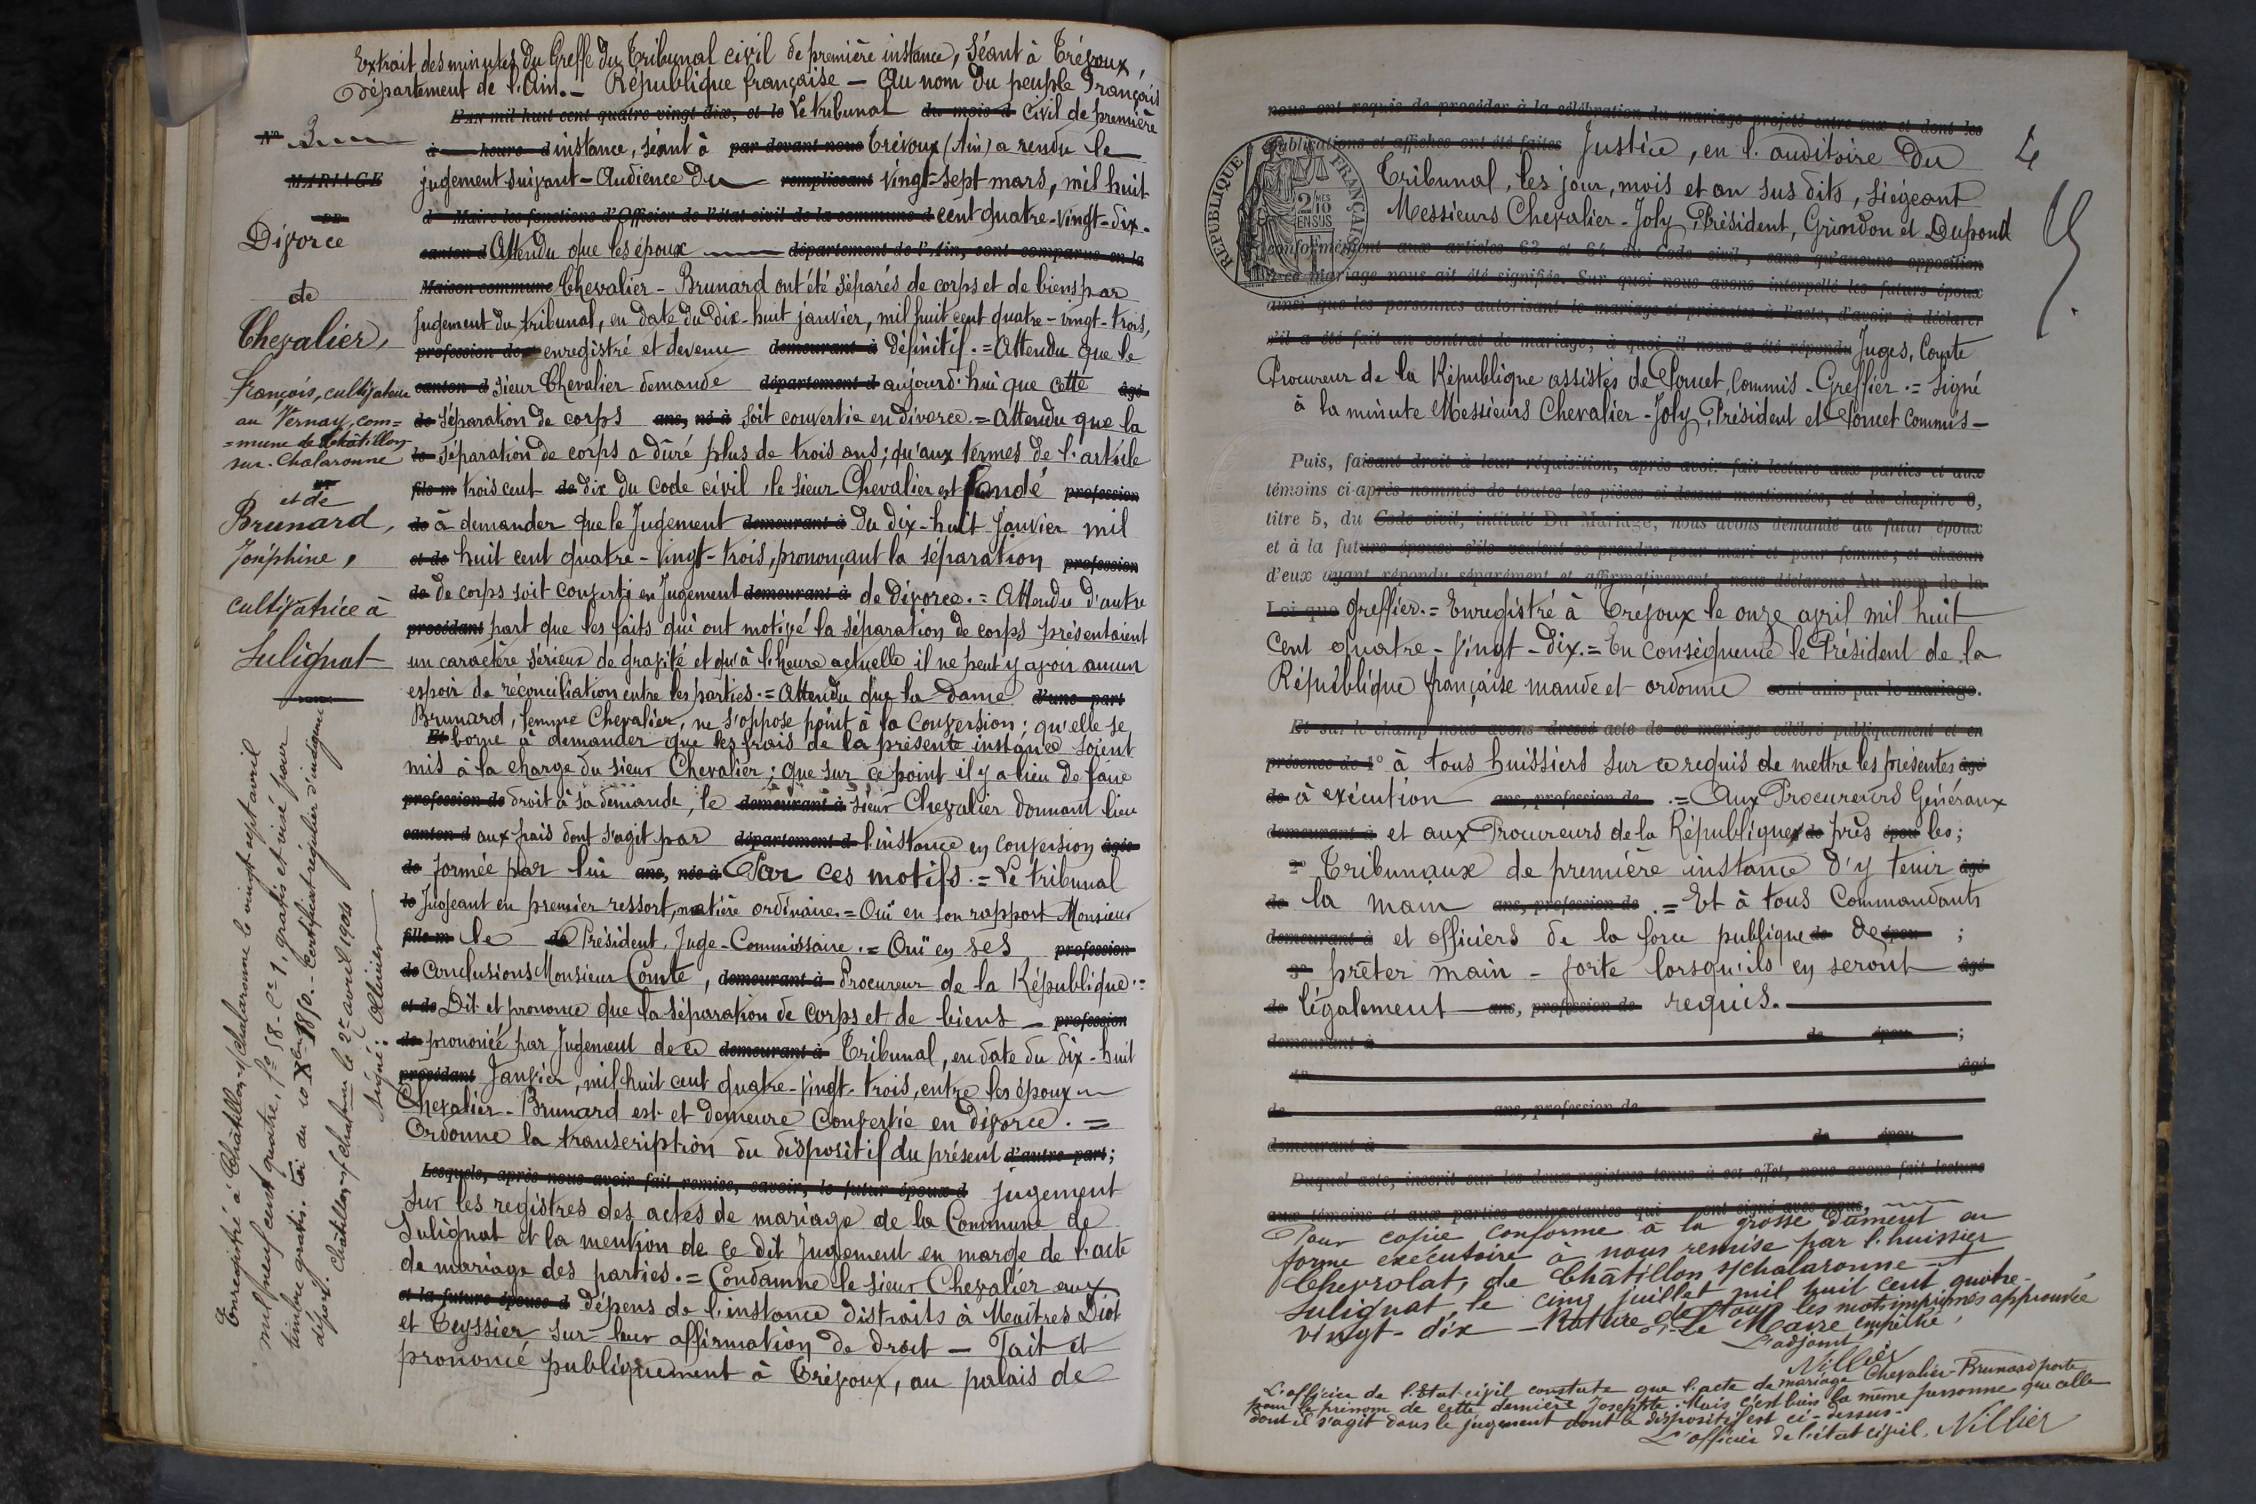 Extrait des minutes du Greffe du Tribunal civil de première instance, séant à Trévoux,
département de l'Ain. — République française — Au nom du peuple Français
L'AN mil huit cent quatre vingt dix, et le Le tribunal du mois d civil de première
N° 3
à heure d instance, séant à par devant nous Trévoux (Ain) a rendu le
MARIAGE
jugement suivant — Audience du remplissant vingt-sept mars, mil huit
DE
d Maire les fonctions d'Officier de l'état civil de la commune d cent quatre-vingt-dix.
Divorce
canton d Attendu que les époux département de l'Ain, sont comparus en la
de
Maison commune Chevalier - Brunard ont été séparés de corps et de biens par
Jugement du tribunal, en date du Dix-huit janvier, mil huit cent quatre-vingt-trois,
Chevalier,
profession de enregistré et devenu demeurant à définitif. = Attendu que le
François, cultivateur
canton d Sieur Chevalier demande département d aujourd'hui que cette âgé
au Vernay, com=
de Séparation de corps ans, né à soit convertie en divorce. = Attendu que la
=mune de Châtillon
sur-Chalaronne
le Séparation de corps a duré plus de trois ans; qu'aux termes de l'article
fils m trois cent de dix du Code civil, le sieur Chevalier est fondé profession
et de
Brunard,
de à demander que le Jugement demeurant à du dix-huit Janvier mil
Joséphine,
et de huit cent quatre-vingt-trois, prononçant la séparation profession
cultivatrice à
de de corps soit converti en Jugement demeurant à de divorce. = Attendu d'autre
procédant part que les faits qui ont motivé la séparation de corps présentaient
Sulignat
un caractère sérieux de gravité et qu'à l'heure actuelle il ne peut y avoir aucun
espoir de réconciliation entre les parties. = Attendu que la dame d'une part
Brunard, femme Chevalier, ne s'oppose point à la conversion; qu'elle se
Et borne à demander que les frais de la présente instance soient
mis à la charge du sieur Chevalier; que sur ce point il y a lieu de faire
profession de droit à sa demande, le demeurant à sieur Chevalier donnant lieu
canton d aux frais dont s'agit par département d l'instance en conversion âgée
de formée par lui ans, née à Par ces motifs. = Le tribunal
le Jugeant en premier ressort, matière ordinaire. = Ouï en son rapport Monsieur
fille m le de Président, Juge-Commissaire. = Ouï en ses profession
de Conclusions Monsieur Comte, demeurant à Procureur de la République. =
et de Dit et prononce que la séparation de corps et de biens — profession
de prononcée par Jugement de ce demeurant à Tribunal, en date du dix-huit
procédant Janvier, mil huit cent quatre-vingt-trois, entre les époux
Chevalier-Brunard est et demeure convertie en divorce. =
Ordonne la transcription du dispositif du présent d'autre part;
Lesquels, après nous avoir fait remise, savoir, le futur époux d jugement
sur les registres des actes de mariage de la Commune de
Sulignat et la mention de ce dit Jugement en marge de l'acte
de mariage des parties. = Condamne le sieur Chevalier aux
et la future épouse d dépens de l'instance distraits à Maîtres Diot
et Teyssier sur leur affirmation de droit — Fait et
prononcé publiquement à Trévoux, au palais de
Enregistré à Châtillon s/Chalaronne le vingt sept avril
mil neuf cent quatre, f° 58 - c° 1, gratis et visé pour
timbre gratis. Loi du 10 Xbre 1850. - Certificat régulier d'indigence
déposé. Châtillon s/Chalaronne le 2 avril 1904
Signé: Ollivier
nous ont requis de procéder à la célébration du mariage projeté entre eux et dont les
publications et affiches ont été faites Justice, en l'auditoire du
4
Tribunal, les jour, mois et an sus dits, siégeant
Messieurs Chevalier-Joly, Président, Grindon et Dupond
RÉPUBLIQUE FRANÇAISE
2/10 MES
EN SUS
conformément aux articles 63 et 64 du Code civil, sans qu'aucune opposition
à ce mariage nous ait été signifiée. Sur quoi nous avons interpellé les futurs époux
ainsi que les personnes autorisant le mariage et présentes à l'acte, d'avoir à déclarer
s'il a été fait un contrat de mariage, à quoi il nous a été répondu Juges, Comte
Procureur de la République assistés de Poncet, Commis-Greffier. = Signé
à la minute Messieurs Chevalier-Joly, Président et Poncet Commis-
Puis, faisant droit à leur réquisition, après avoir fait lecture aux parties et aux
témoins ci-après nommés de toutes les pièces ci-dessus mentionnées, et du chapitre 6,
titre 5, du Code civil, intitulé Du Mariage, nous avons demandé au futur époux
et à la future épouse s'ils veulent se prendre pour mari et pour femme; et chacun
d'eux ayant répondu séparément et affirmativement, nous déclarons Au nom de la
Loi que Greffier. = Enregistré à Trévoux le onze avril mil huit
cent quatre-vingt-dix. = En conséquence le Président de la
République française mande et ordonne sont unis par le mariage.
Et sur le champ nous avons dressé acte de ce mariage célébré publiquement et en
présence de 1° à tous huissiers sur ce requis de mettre les présentes âgé
de à exécution ans, profession de . = Aux Procureurs Généraux
demeurant à et aux Procureurs de la République de près épou les;
2° Tribunaux de première instance d'y tenir âgé
de la main ans, profession de . = Et à tous Commandants
demeurant à et officiers de la force publique de de épou ;
3° prêter main-forte lorsqu'ils en seront âgé
de légalement ans, profession de requis.
demeurant à de épou ;
4° âgé
de ans, profession de
demeurant à de épou
Duquel acte, inscrit sur les deux registres tenus à cet effet, nous avons fait lecture
aux témoins et aux parties contractantes qui ont signé avec nous,
Pour copie conforme à la grosse dûment en
forme exécutoire à nous remise par l'huissier
Chevrolat, de Châtillon s/Chalaronne —
Sulignat, le cinq juillet mil huit cent quatre-
vingt-dix — Rature de tous les mots imprimés approuvée
Le Maire empêché,
L'adjoint,
Nillier
L'officier de l'état-civil constate que l'acte de mariage Chevalier-Brunard porte
pour le prénom de cette dernière Josephte. Mais c'est bien la même personne que celle
dont il s'agit dans le jugement dont le dispositif est ci-dessus.
L'officier de l'état civil, Nillier